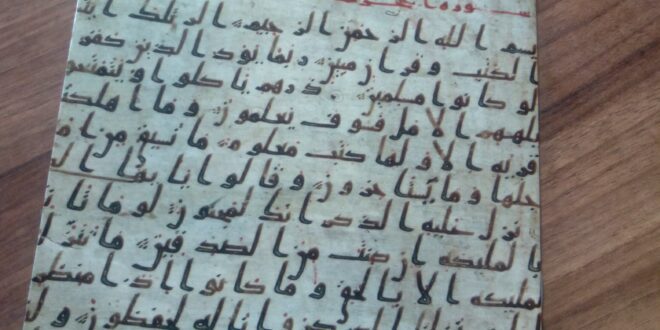 سورة
بسم الله الرحمن الرحيم الر تلك ا
الكتب وقران مبين ربما يود الذين كفر
لو كانوا مسلمين ذرهم ياكلوا ويتمتعوا
يلههم الامل فسوف يعلمون وما اهلكنا
قرية الا ولها كتب معلوم ما تسبق من ا
جلها وما يستاخرون وقالوا يايها ا
نزل عليه الذكر انك لمجنون لو ما تا
بالمليكة ان كنت من الصدقين ما ننزل
لمليكة الا بالحق وما كانوا اذا منظر
نزلنا الذكر وانا له لحفظون و